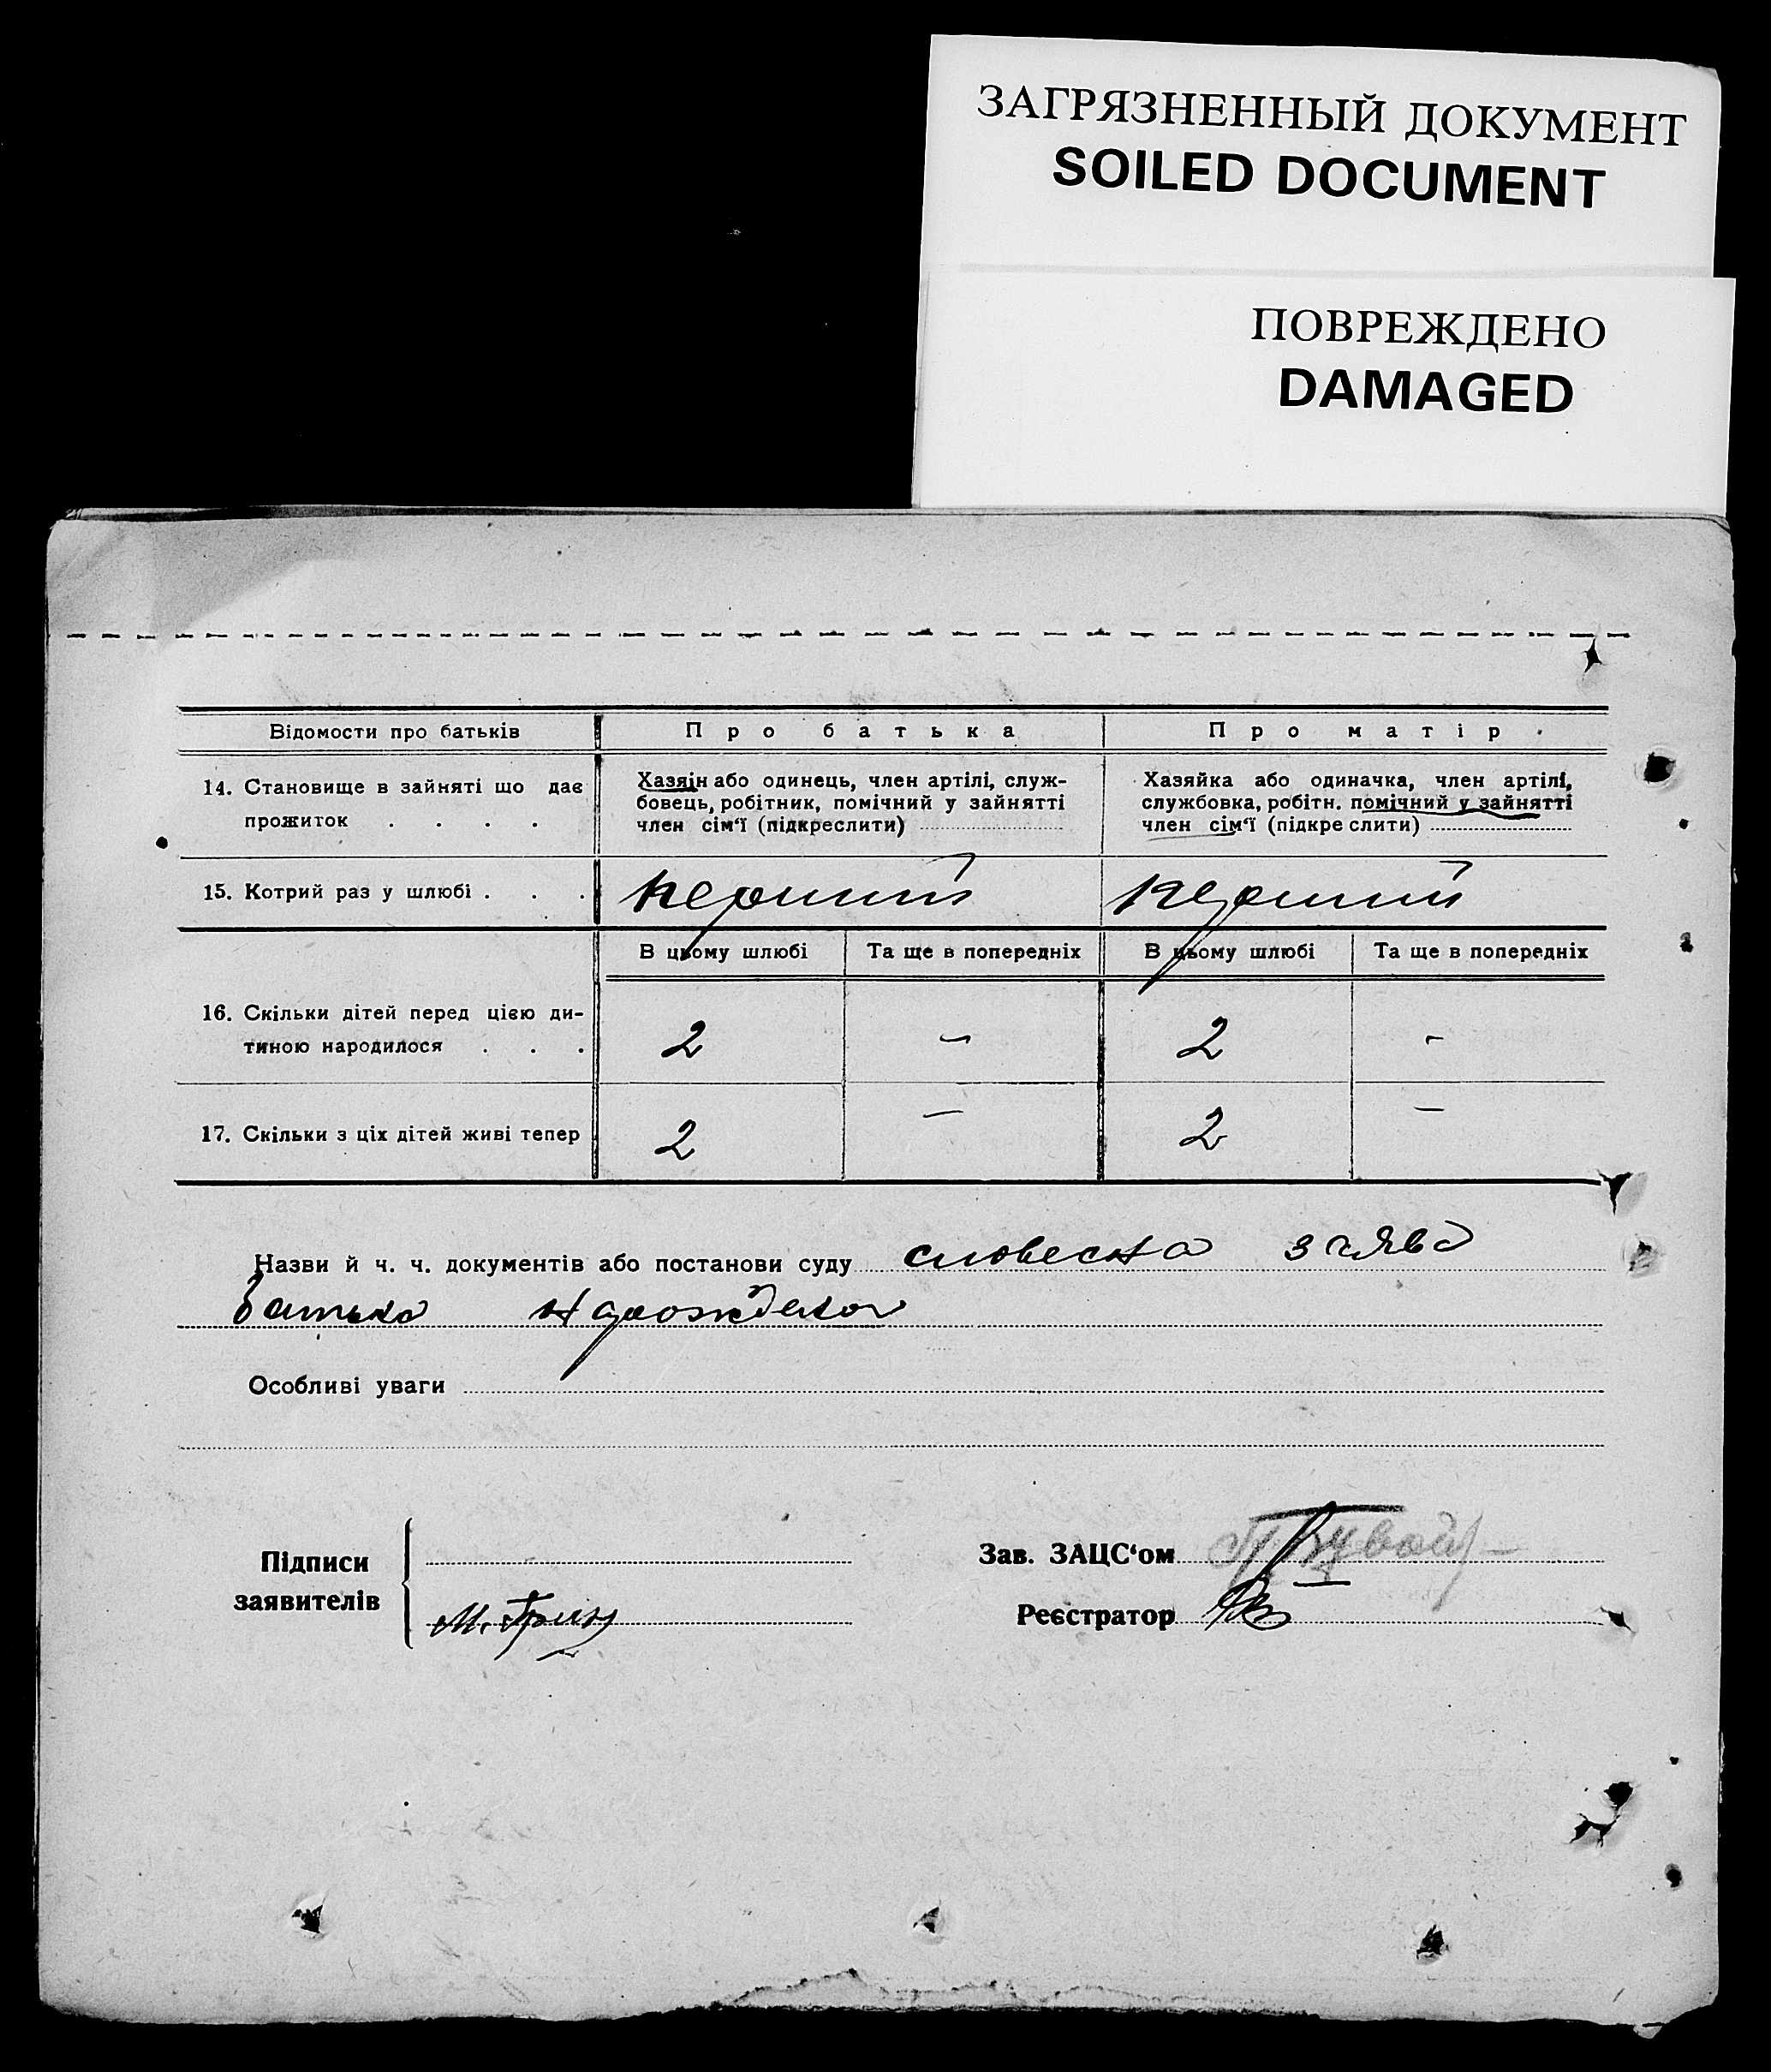 ЗАГРЯЗНЕННЫЙ ДОКУМЕНТ
SOILED DOCUMENT
ПОВРЕЖДЕНО
DAMAGED
Відомости про батьків
Про батька
Про матір
14. Становище в зайняті що дає
прожиток . . . .
Хазяін або одинець, член артілі, служ-
бовець, робітник, помічний у зайнятті
член сім‘ї (підкреслити)
Хазяйка або одиначка, член артілі,
службовка, робітн. помічний у зайнятті
член сім‘ї (підкреслити)
15. Котрий раз у шлюбі . . .
перший
перший
В цьому шлюбі
Та ще в попередніх
В цьому шлюбі
Та ще в попередніх
16. Скільки дітей перед цією ди-
тиною народилося . . .
2 – 2 –
17. Скільки з ціх дітей живі тепер
2 – 2 –
Назви й ч. ч. документів або постанови суду словесна заява
батька
Особливі уваги
Підписи
заявителів
М. Грин
Зав. ЗАЦС‘ом
Реєстратор